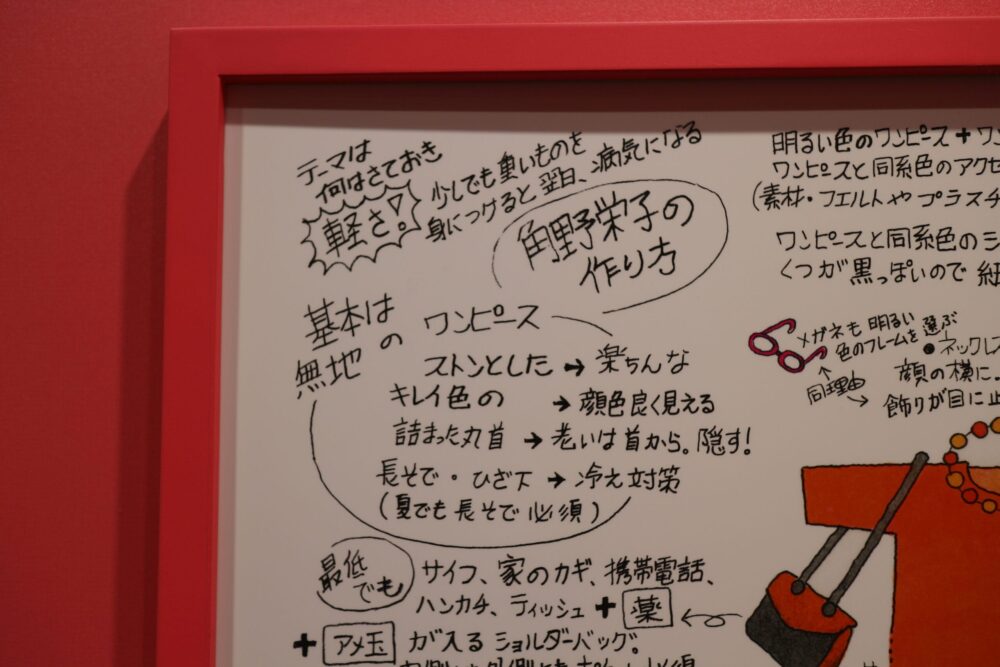 テーマは
何はさておき
軽さ!
少しでも重いものを
身につけると翌日、病気になる
角野栄子の
作り方
基本は
無地の
ワンピース
ストンとした → 楽ちんな
キレイ色の → 顔色良く見える
詰まった丸首 → 老いは首から。隠す!
長そで・ひざ下 → 冷え対策
(夏でも長そで必須)
最低
でも
サイフ、家のカギ、携帯電話、
ハンカチ、ティッシュ + 薬
+ アメ玉 が入るショルダーバッグ。
明るい色のワンピース + ワン
ワンピースと同系色のアクセ
(素材・フエルトやプラスチ
ワンピースと同系色のシ
くつが黒っぽいので
メガネも明るい
色のフレームを選ぶ
同理由
●ネックレス
顔の横に
飾りが目に止